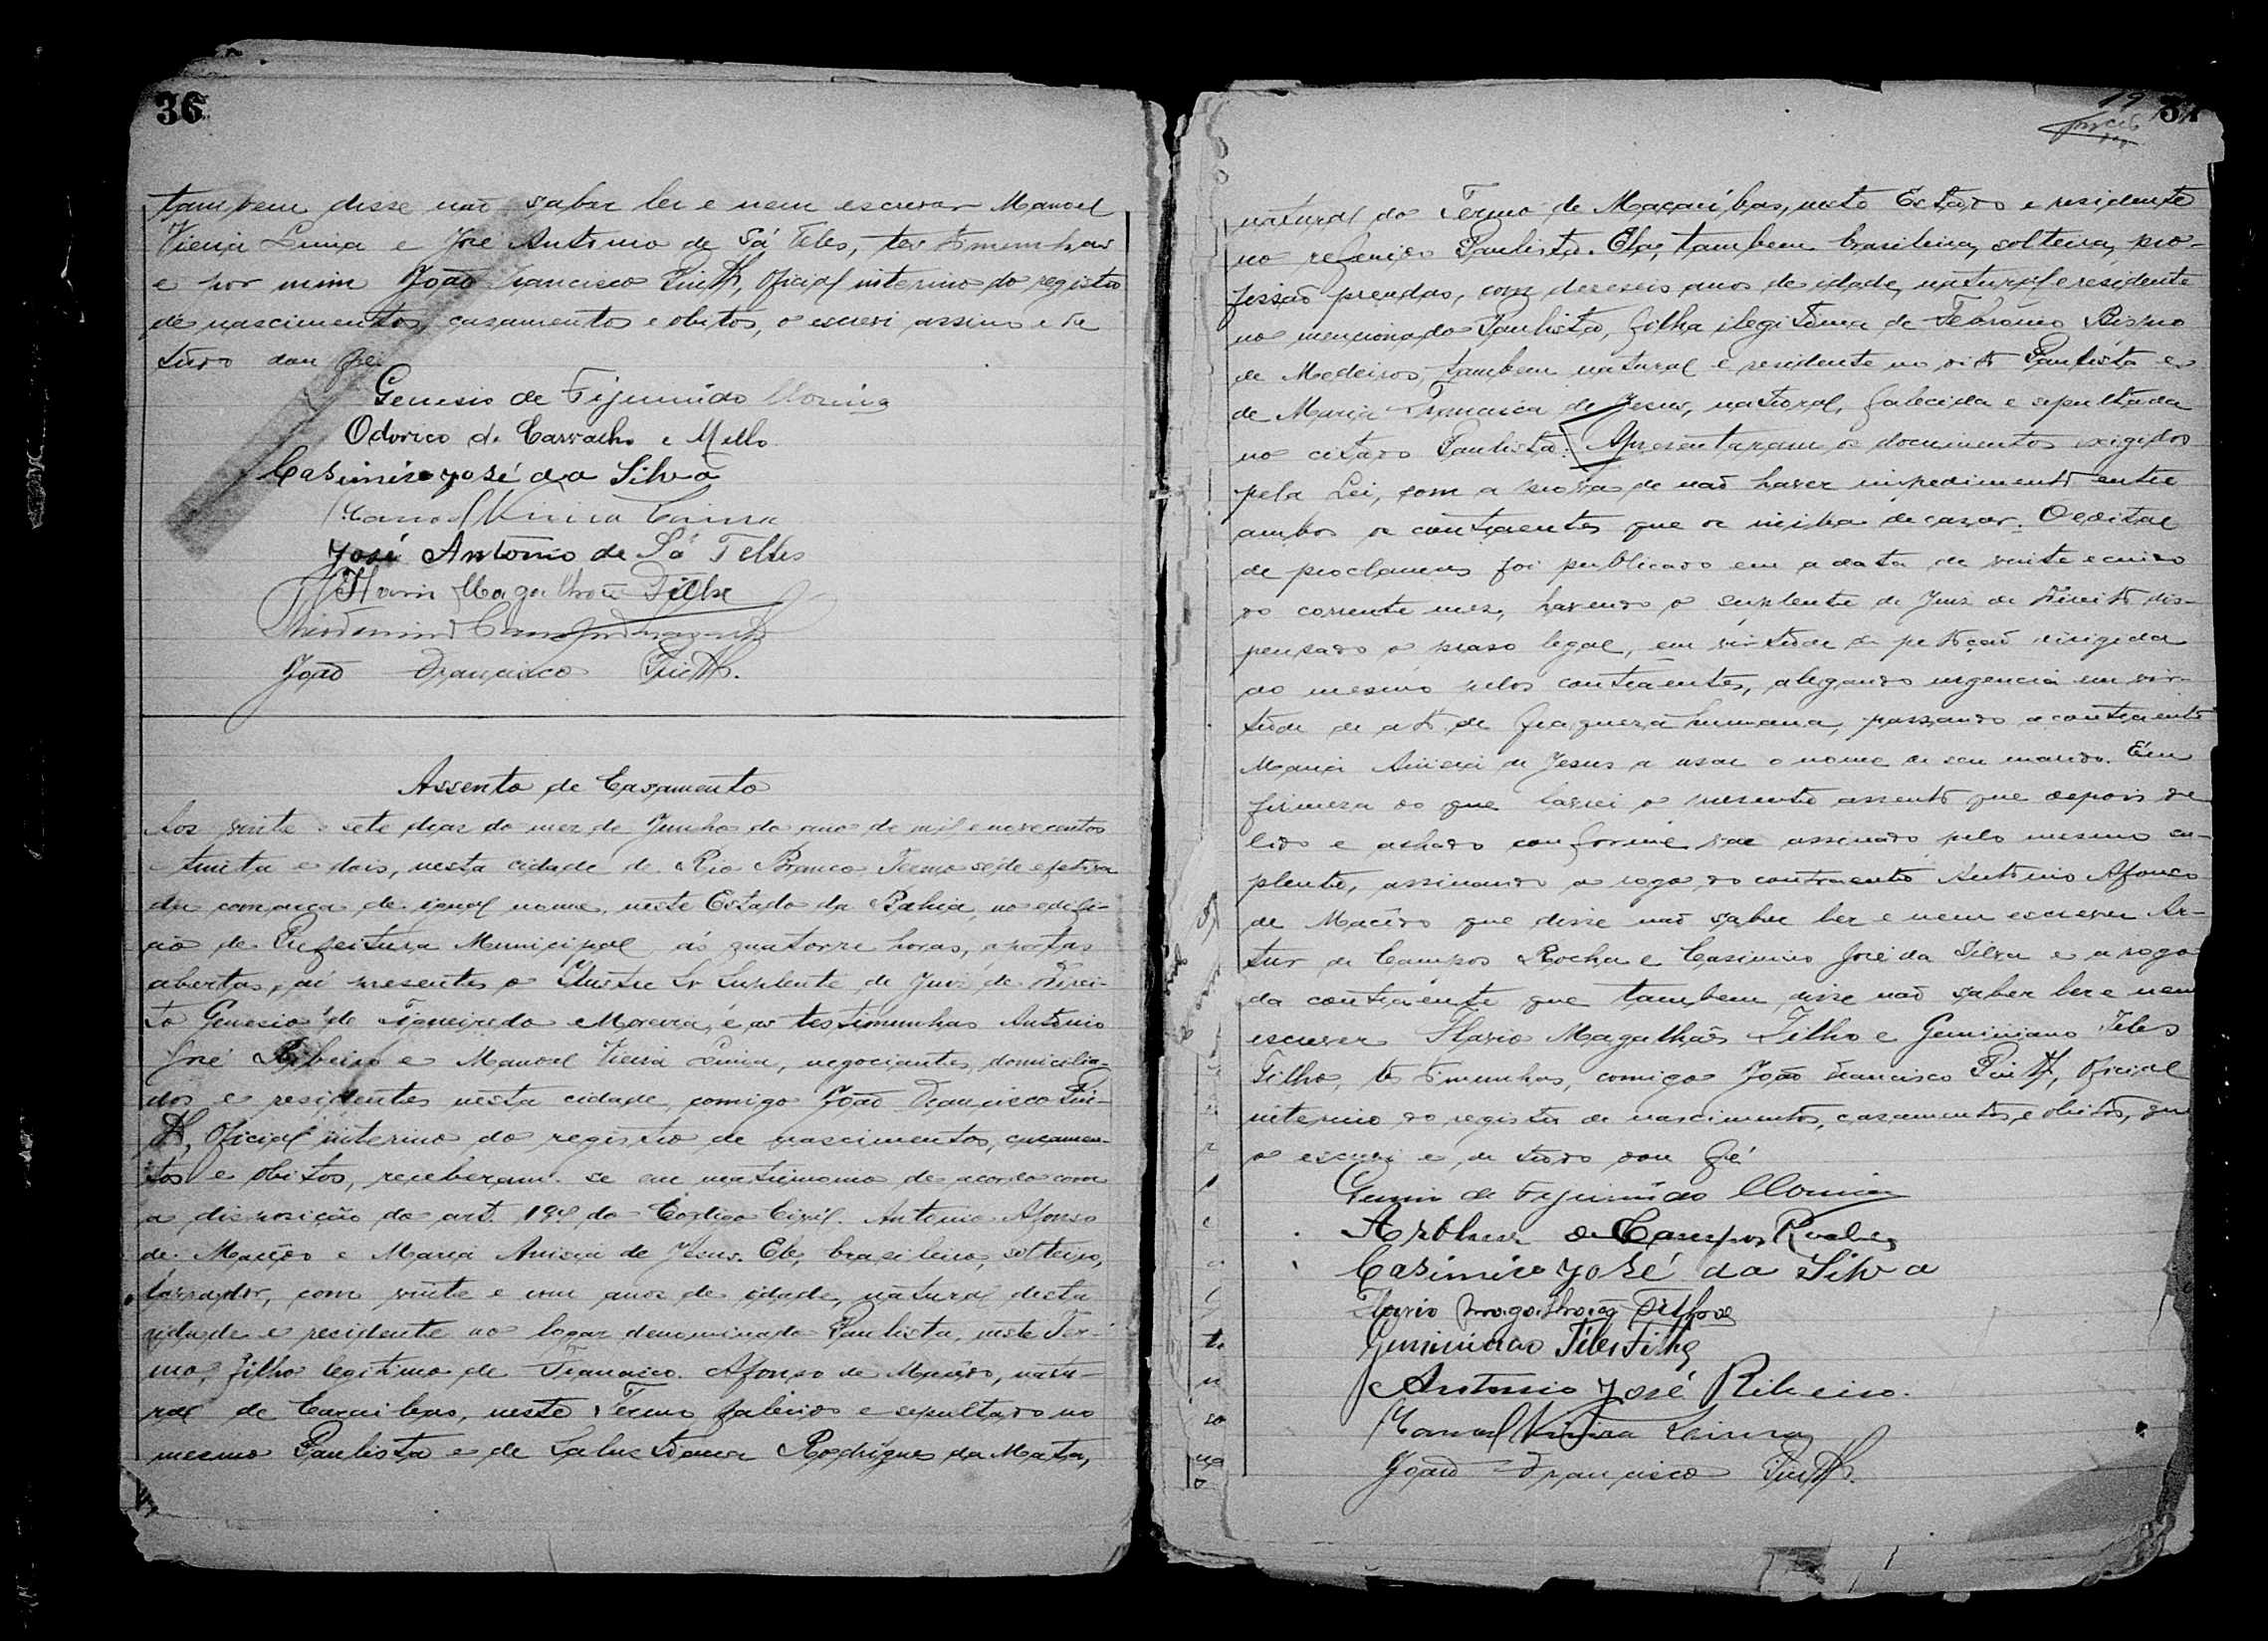 36
tambem disse não saber ler e nem escrever Manoel
Vieira Lima e José Antonio de Sá Teles, testemunhas
e por mim João Francisco Pinto, Oficial interino do registro
de nascimentos, casamentos e obitos, o escrevi assino e de
tudo dou fé
Genesio de Figueirêdo Moreira
Odorico de Carvalho e Mello
Casimiro José da Silva
Manoel Vieira Lima
José Antonio de Sá Telles
Flavio Magalhães Filho
João Francisco Pinto.
Assento de Casamento
Aos vinte e sete dias do mez de Junho do ano de mil e novecentos
e trinta e dois, nesta cidade de Rio Branco Termo séde efetiva
da comarca de igual nome, neste Estado da Bahia, no edifi-
cio de Prefeitura Municipal, ás quatorze horas, a portas
abertas, aí presentes o Ilustre Sr Suplente de Juiz de Direi-
to Genesio de Figueiredo Moreira, e as testimunhas Antonio
José Ribeiro e Manoel Vieira Lima, negociantes, domicilia-
dos e residentes nesta cidade, comigo João Francisco Pin-
to, Oficial interino do registro de nascimentos, casamen-
tos e obitos, receberam-se em matrimonio de acordo com
a disposição do art. 194 do Codigo Civil. Antonio Afonso
de Macêdo e Maria Anisia de Jesus. Ele, brasileiro, solteiro,
lavrador, com vinte e um anos de idade, natural desta
cidade e residente no logar denominado Paulista, neste Ter-
mo, filho legitimo de Francisco Afonso de Macêdo, natu-
ral de Caraibas, neste Termo falecido e sepultado no
mesmo Paulista e de Salustiana Rodrigues da Mata,
19
37
natural do Termo de Macaúbas, neste Estado e residente
no referido Paulista. Ela, tambem brasileira, solteira, pro-
fissão prendas, com dezeseis anos de idade, natural e residente
no mencionado Paulista, filha ilegitima de
de Medeiros, tambem natural e residente no dito Paulista e
de Maria Francisca de Jesus, natural, falecida e sepultada
no citado Paulista. Apresentaram os documentos exigidos
pela Lei, com a prova de não haver impedimento entre
ambos os contraentes que os iniba de casar. O edital
de proclamas foi publicado em a data de vinte e cinco
do corrente mez, havendo o suplente de Juiz de Direito dis-
pensado o praso legal, em virtude de petição dirigida
ao mesmo pelos contraentes, alegando urgencia em vir-
tude de ato de fraqueza humana, passando a contraente
Maria Anisia de Jesus a usar o nome de seu marido. Em
firmeza do que lavrei o presente assento que depois de
lido e achado conforme vae assinado pelo mesmo su-
plente, assinando a rogo do contraente Antonio Afonso
de Macêdo que disse não saber ler e nem escrever Ar-
tur de Campos Rocha e Casimiro José da Silva e a rogo
da contraente que tambem disse não saber ler e nem
escrever Flavio Magalhães Filho e Geminiano Teles
Filho, testimunhas, comigo João Francisco Pinto, Oficial
interino do registro de nascimentos, casamentos, e obitos, que
o escrevi e de tudo dou fé
Genesio de Figueirêdo Moreira
Arthur de Campos Rocha
Casimiro José da Silva
Flavio Magalhães Filho
Geminiano Téles Filho
Antonio José Ribeiro.
Manoel Vieira Lima
João Francisco Pinto.